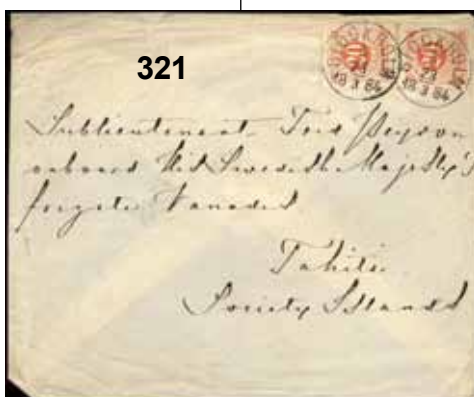 321
STOCKHOLM STOCKHOLM
23 23
18 3 84 18 3 84
Sublieutenant
onboard His Swedish Majesty's
frigate Vanadis
Tahiti
Society Islands